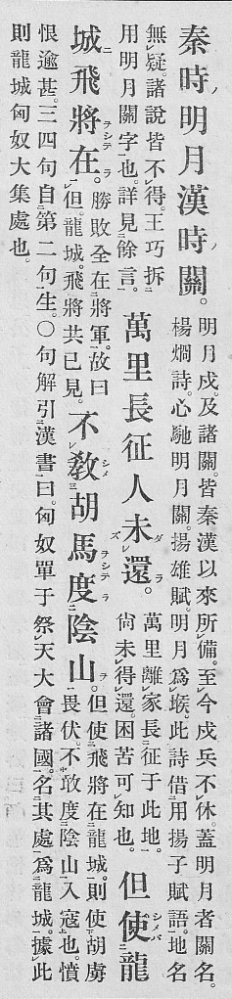 秦時明月漢時關。
明月戍。及諸關。皆秦漢以來所備。至今戍兵不休。蓋明月者關名。
楊烱詩。心馳明月關。揚雄賦。明月爲堠。此詩借用揚子賦語。地名
無疑。諸說皆不得。王巧拆
用明月關字也。詳見餘言。
萬里長征人未還。
萬里離家。長征于此地。
尙未得還。困苦可知也。
但使龍
城飛將在。
勝敗全在將軍。故曰
但。龍城。飛將共已見。
不敎胡馬度陰山。
但使飛將在龍城。則使胡虜
畏伏。不敢度陰山入寇也。憤
恨逾甚。三四句自第二句生。〇句解引漢書曰。匈奴單于祭天大會諸國。名其處爲龍城。據此
則龍城匈奴大集處也